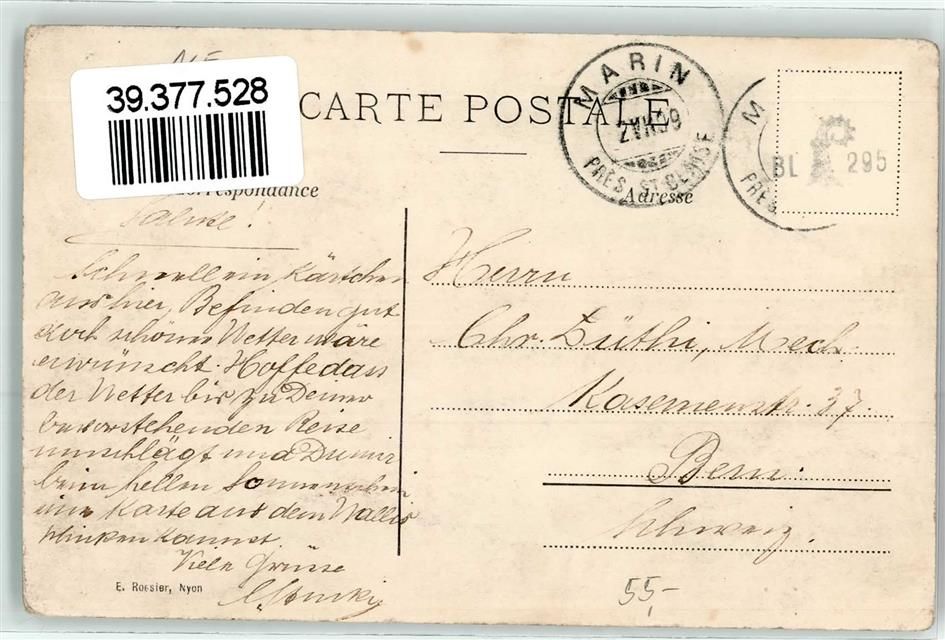 39.377.528
CARTE POSTALE
MARIN
PRÈS ST BLAISE
M
PRÈS
BL 295
Correspondance
Adresse
Salute!
Schnell ein Kärtchen
aus hier, Befinden gut
doch schönes Wetter wäre
erwünscht. Hoffe dass
der Wetter bis zu Deiner
bevorstehenden Reise
umschlägt und Du mir
beim hellen Sonnenschein
eine Karte aus dem Wallis
schicken kannst.
Viele Grüsse
Herrn
Chr. Lüthi, Mech.
Kasernenstr. 37.
Bern.
Schweiz.
E. Rossier, Nyon
55,-